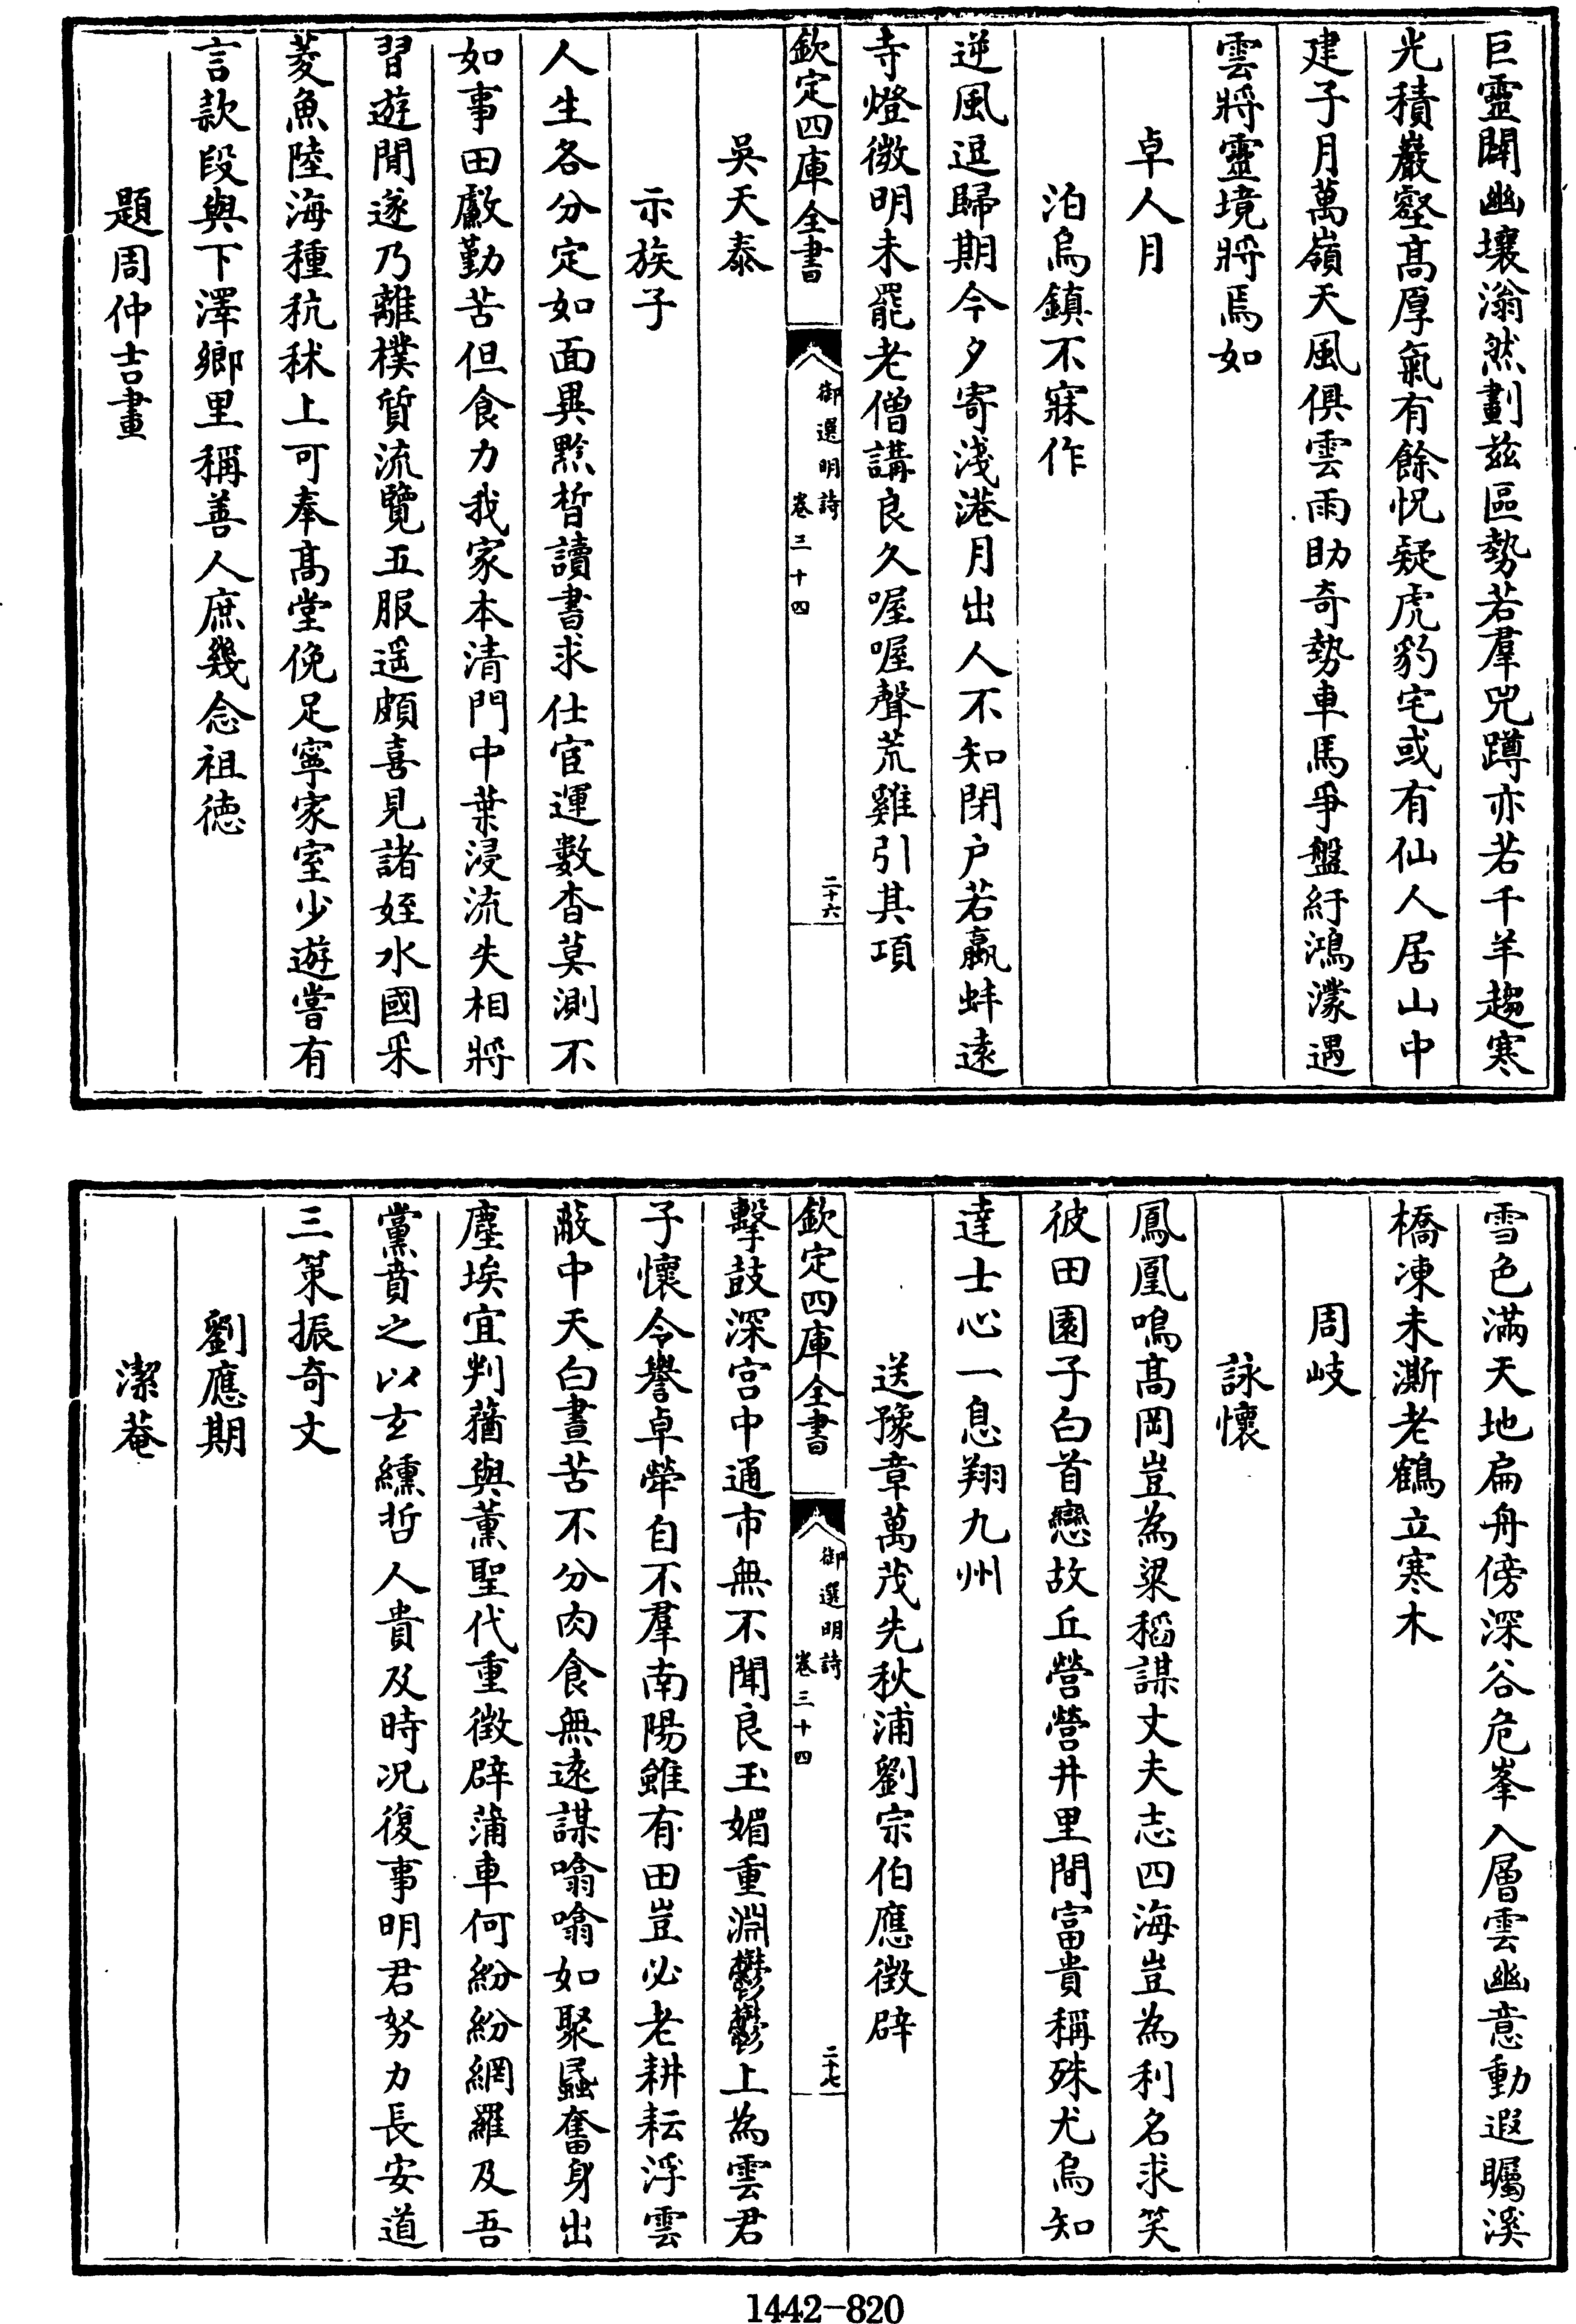 巨靈闢幽壤滃然劃兹區勢若羣兕蹲亦若千羊趨寒
光積巖壑髙厚氣有餘怳疑虎豹宅或有仙人居山中
建子月萬嶺天風俱雲雨助奇勢車馬爭盤紆鴻濛遇
雲將靈境將焉如
卓人月
泊烏鎮不寐作
逆風逗歸期今夕寄淺港月出人不知閉户若蠃蚌逺
寺燈微明未罷老僧講良久喔喔聲荒雞引其項
欽定四庫全書
御選明詩
卷三十四
二十六
吳天泰
示族子
人生各分定如面異黔晳讀書求仕宦運數杳莫測不
如事田畝勤苦但食力我家本清門中葉浸流失相將
習遊閒遂乃離樸質流覽五服遥頗喜見諸姪水國采
菱魚陸海種秔秫上可奉髙堂俛足寧家室少遊嘗有
言款段與下澤鄉里稱善人庶幾念祖徳
題周仲吉畫
雪色滿天地扁舟傍深谷危峯入層雲幽意動遐矚溪
橋凍未澌老鶴立寒木
周岐
詠懷
鳳凰鳴髙岡豈為粱稻謀丈夫志四海豈為利名求笑
彼田園子白首戀故丘營營井里間富貴稱殊尤烏知
達士心一息翔九州
送豫章萬茂先秋浦劉宗伯應徴辟
欽定四庫全書
御選明詩
卷三十四
二十七
擊鼓深宫中通市無不聞良玉媚重淵鬱鬱上為雲君
子懷令譽卓犖自不羣南陽雖有田豈必老耕耘浮雲
蔽中天白晝苦不分肉食無逺謀噏噏如聚蟁奮身出
塵埃宜判蕕與薰聖代重徴辟蒲車何紛紛網羅及吾
黨賁之以玄纁哲人貴及時况復事明君努力長安道
三策振奇文
劉應期
潔菴
1442-820